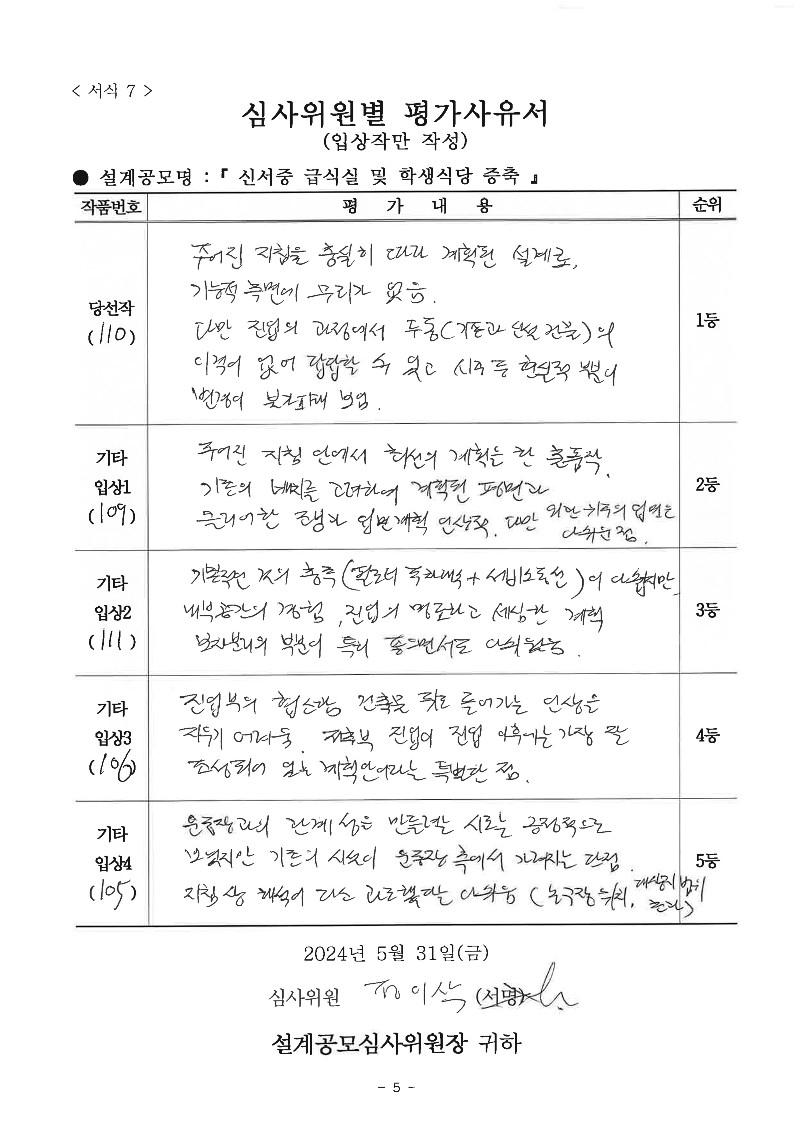 < 서식 7 >
심사위원별 평가사유서
(입상작만 작성)
● 설계공모명 : 『 신서중 급식실 및 학생식당 증축 』
작품번호 평 가 내 용 순위
당선작
(110)
주어진 지침을 충실히 따라 계획된 설계로,
기능적 측면에 무리가 없음.
다만 진입의 과정에서 두동(기존과 신설 건물)의
이격이 없어 답답할 수 있고 시주 등 현실적 부분이
변경이 불가피해 보임.
1등
기타
입상1
(109)
주어진 지침 안에서 최선의 계획을 한 출품작.
기존의 배치를 고려하여 계획된 평면과
클리어한 조형과 입면계획 인상적. 다만
입면은
아쉬운 점.
2등
기타
입상2
(111)
기본적인 것의 충족
이 아쉽지만,
내부공간의 경험, 진입의 명료하고 세심한 계획
보차분리의 부분이 특히 좋으면서도 아쉬웠음.
3등
기타
입상3
(106)
진입부의 협소함 건축물 뒤로 들어가는 인상은
지우기 어려움. 진입이 진입 이후에는 가장 잘
조성되어 있는 계획안이라는 특별한 점.
4등
기타
입상4
(105)
운동장과의 관계성을 만들려는 시도는 긍정적으로
보였지만 기존의 시설이 운동장 측에서 가려지는 단점.
지침상 해석이 다소 과도했다는 아쉬움 (
위치, 대상지 범위
초과)
5등
2024년 5월 31일(금)
심사위원 정이삭 (서명)
설계공모심사위원장 귀하
- 5 -